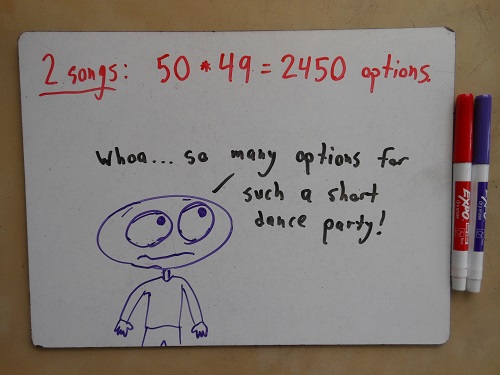 2 songs: 50 * 49 = 2450 options.
Whoa... so many options for
such a short
dance party!
EXPO